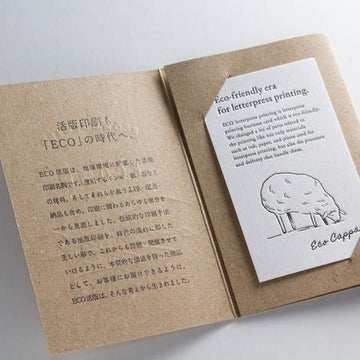 活版印刷も、
「ECO」の時代へ。
ECO活版は、地球環境に配慮した活版
印刷名刺です。使用するインキ、紙、版など
の材料、そしてそれらを扱う工程・配送・
納品も含め、印刷に関わるあらゆる部分を
一から見直しました。伝統的な印刷手法
である活版印刷を、時代の流れに即した
正しい形で、これからも持続・発展させて
いけるように。本質的な価値を持った製品
として、お客様にお届けできるように。
ECO活版は、そんな考えから生まれました。
Eco-friendly era
for letterpress printing.
ECO letterpress printing is letterpress
printing business card which is eco-friendly.
We changed a lot of parts related to
the printing like not only materials
such as ink, paper, and plates used for
letterpress printing, but also the processes
and delivery that handle them.
Eco Cappa